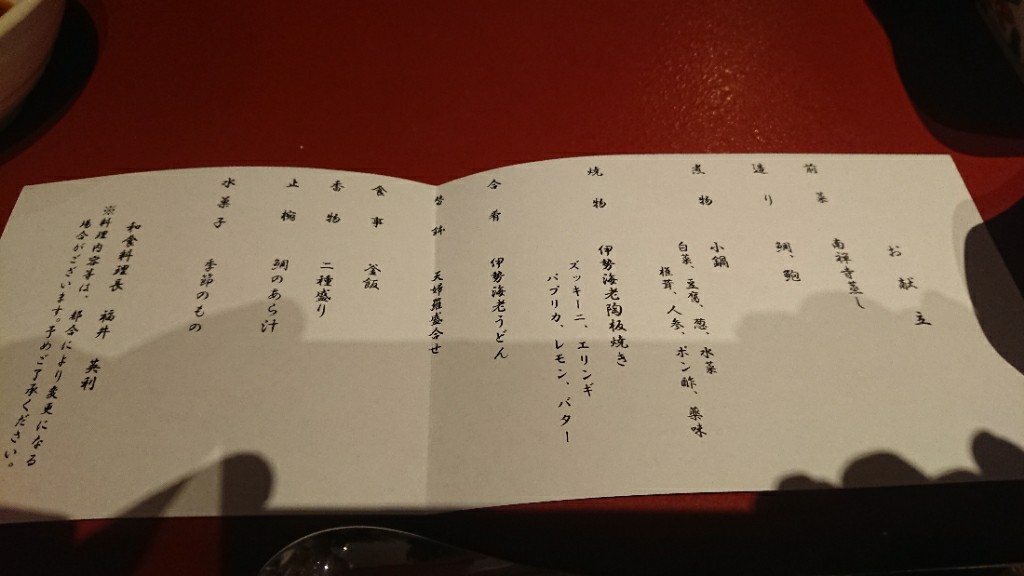 お献立
前菜
南禅寺蒸し
造り
鯛、鮑
煮物
小鍋
白菜、豆腐、葱、水菜
椎茸、人参、ポン酢、薬味
焼物
伊勢海老陶板焼き
ズッキーニ、エリンギ
パプリカ、レモン、バター
合肴
伊勢海老うどん
天婦羅盛合せ
食事
釜飯
香物
二種盛り
止椀
鯛のあら汁
水菓子
季節のもの
和食料理長 福井 英利
※料理内容等は、都合により変更になる
場合がございます。予めご了承ください。